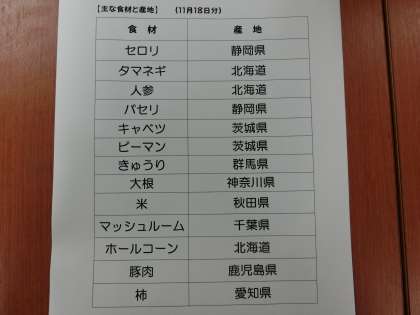 【主な食材と産地】 (11月18日分)
食 材 産 地
セロリ 静岡県
タマネギ 北海道
人参 北海道
パセリ 静岡県
キャベツ 茨城県
ピーマン 茨城県
きゅうり 群馬県
大根 神奈川県
米 秋田県
マッシュルーム 千葉県
ホールコーン 北海道
豚肉 鹿児島県
柿 愛知県